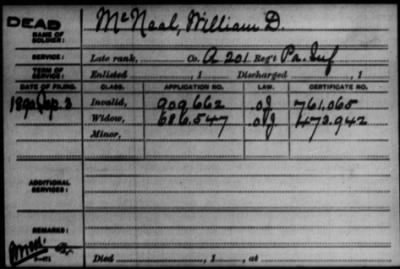 DEAD
NAME OF SOLDIER: McNaal, William D.
SERVICE: Late rank, Co. A 201 Reg't Pa. Inf
TERM OF SERVICE: Enlisted , 1 Discharged , 1
DATE OF FILING. CLASS. APPLICATION NO. LAW. CERTIFICATE NO.
Invalid, 909.662 761,065
Widow, 686.547 473.942
Minor,
ADDITIONAL SERVICES:
REMARKS:
Died , 1 , at